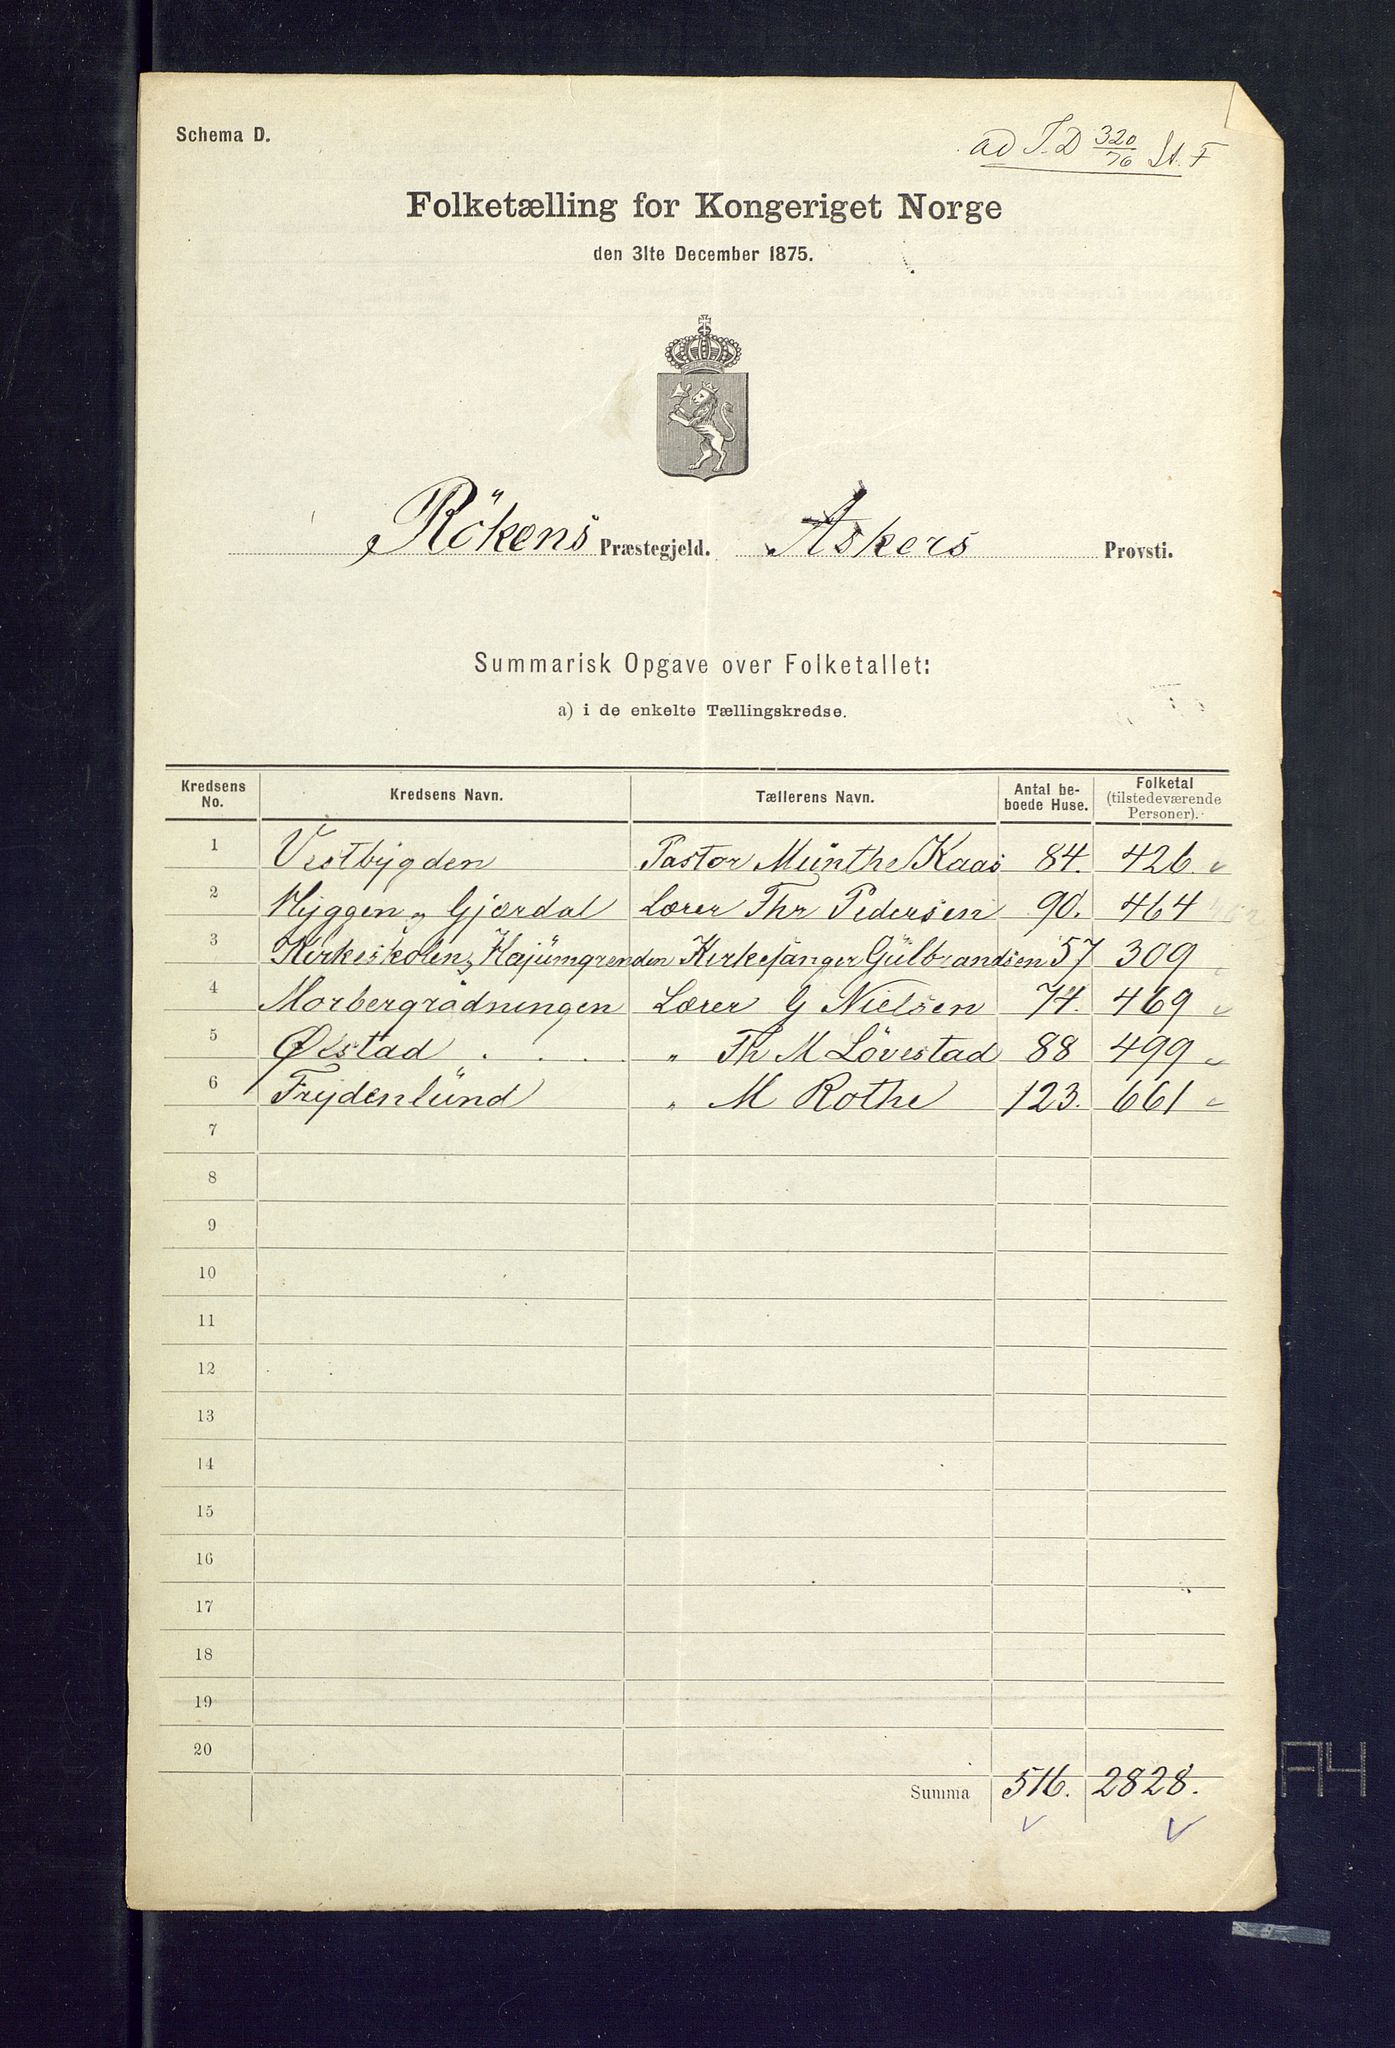 Schema D.
ad J.D 320/76 St. F
Folketælling for Kongeriget Norge
den 31te December 1875.
Rökens Præstegjeld. Askers Provsti.
Summarisk Opgave over Folketallet:
a) i de enkelte Tællingskredse.
Kredsens No. Kredsens Navn. Tællerens Navn. Antal beboede Huse. Folketal (tilstedeværende Personer).
1 Vestbygden Pastor Munthe Kaas 84. 426
2 Hyggen og Gjærdal Lærer Thr Pedersen 90. 464
3 Kirkeskolen og Hajumgrenden Kirkesanger Gulbrandsen 57 309
4 Morbergrødningen Lærer G Nielsen 74. 469
5 Østad . . . . " Th M Lövestad 88 499
6 Frydenlund " M Rothe 123. 661
7
8
9
10
11
12
13
14
15
16
17
18
19
20
Summa 516. 2828.
A4